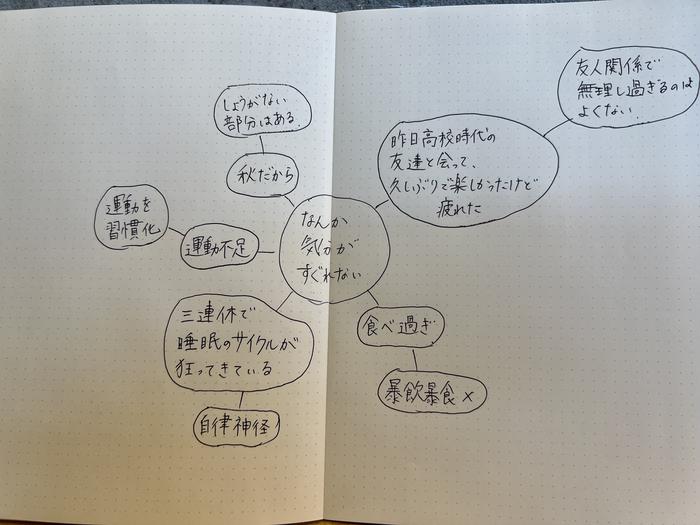 しょうがない
部分はある.
秋だから
運動を
習慣化
運動不足
なんか
気分が
すぐれない
三連休で
睡眠のサイクルが
狂ってきている
自律神経
友人関係で
無理し過ぎるのは
よくない
昨日高校時代の
友達と会って、
久しぶりで楽しかったけど
疲れた
食べ過ぎ
暴飲暴食 ×